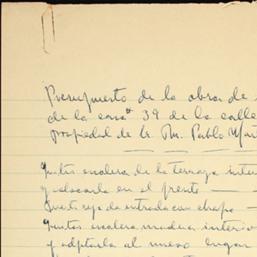 Presupuesto de la obra de
de la casa 39 de la calle
propiedad de D. Pablo Mart
escalera de la terraza inte
y colocarla en el frente —
reja de entrada con chapa —
escalera madera interio
y adaptarla al nuevo lugar